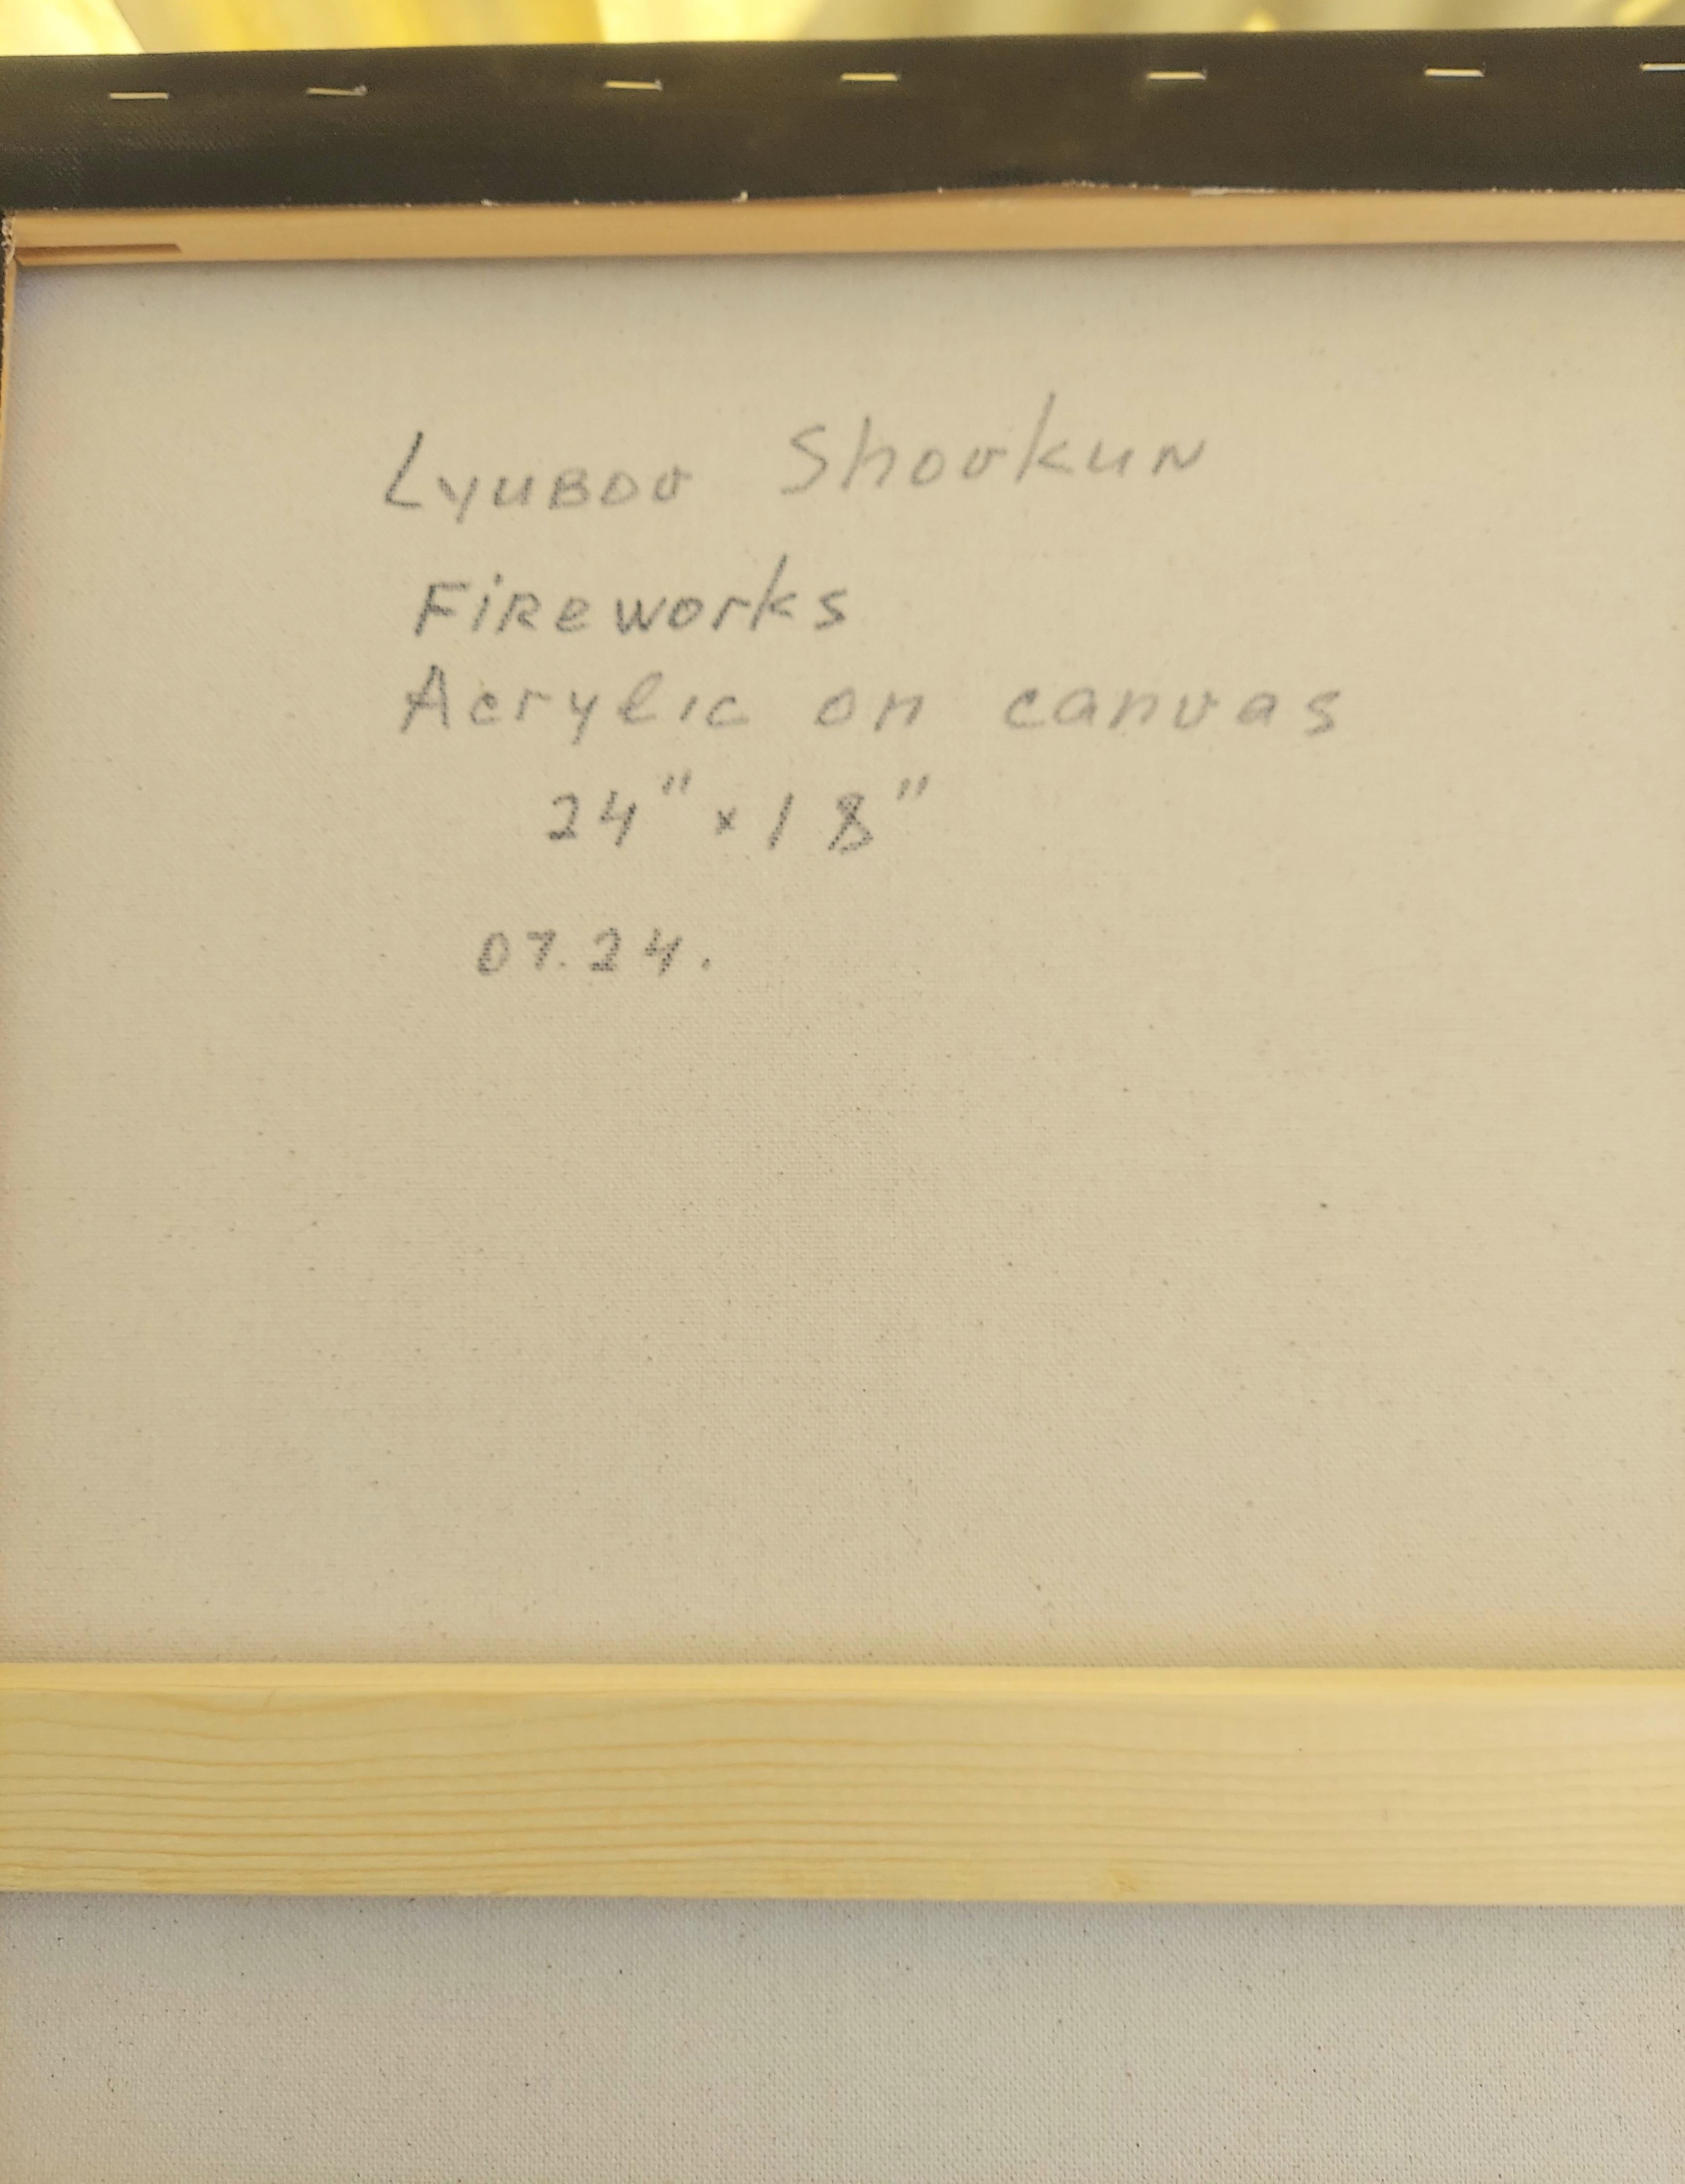 Lyubov Shovkun
Fireworks
Acrylic on canvas
24" × 18"
07.24.